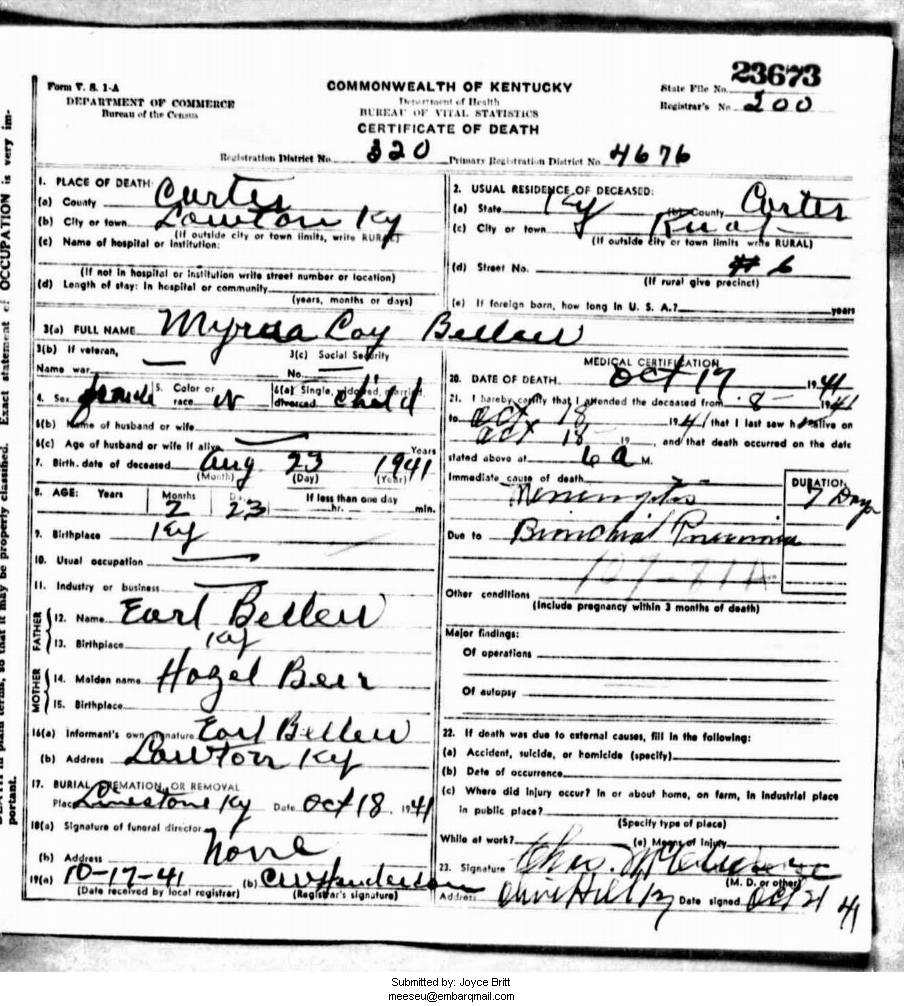 23673
Form V. S. 1-A
DEPARTMENT OF COMMERCE
Bureau of the Census
COMMONWEALTH OF KENTUCKY
Department of Health
BUREAU OF VITAL STATISTICS
CERTIFICATE OF DEATH
State File No.
Registrar's No. 200
Registration District No. 320 Primary Registration District No. 4676
1. PLACE OF DEATH:
(a) County Carter
(b) City or town Lawton Ky
(If outside city or town limits, write RURAL)
(c) Name of hospital or institution:
(If not in hospital or institution write street number or location)
(d) Length of stay: In hospital or community
(years, months or days)
2. USUAL RESIDENCE OF DECEASED:
(a) State Ky (b) County Carter
(c) City or town Rural
(If outside city or town limits write RURAL)
(d) Street No. # 6
(If rural give precinct)
(e) If foreign born, how long in U. S. A.? years
3(a) FULL NAME Bellew
3(b) If veteran,
Name war
3(c) Social Security
No.
4. Sex female 5. Color or race W 6(a) Single, widowed, married, divorced child
6(b) Name of husband or wife
6(c) Age of husband or wife if alive Years
7. Birth date of deceased Aug 23 1941
(Month) (Day) (Year)
8. AGE: Years Months Days If less than one day
2 23 hr. min.
9. Birthplace Ky
10. Usual occupation
11. Industry or business
FATHER
12. Name Earl Bellew
13. Birthplace Ky
MOTHER
14. Maiden name Hazel
15. Birthplace
16(a) Informant's own signature Earl Bellew
(b) Address Lawton Ky
17. BURIAL CREMATION, OR REMOVAL
Place Limestone Ky Date Oct 18, 1941
18(a) Signature of funeral director
(b) Address None
19(a) 10-17-41 (b) CW Henderson
(Date received by local registrar) (Registrar's signature)
MEDICAL CERTIFICATION
20. DATE OF DEATH Oct 17 1941
21. I hereby certify that I attended the deceased from 8 1941
to Oct 18 1941 that I last saw h alive on
Oct 18 19 , and that death occurred on the date
stated above at 6 a M.
Immediate cause of death
DURATION
Meningitis 7 Days
Due to Bronchial Pneumonia
Other conditions
(Include pregnancy within 3 months of death)
Major findings:
Of operations
Of autopsy
22. If death was due to external causes, fill in the following:
(a) Accident, suicide, or homicide (specify)
(b) Date of occurrence
(c) Where did injury occur? In or about home, on farm, in industrial place
in public place?
(Specify type of place)
While at work? (e) Means of injury
23. Signature Chas.
(M. D. or other)
Address Olive Hill Ky Date signed Oct 21 41
Exact statement of OCCUPATION is very im-
in plain terms, so that it may be properly classified.
portant.
Submitted by: Joyce Britt
meeseu@embarqmail.com